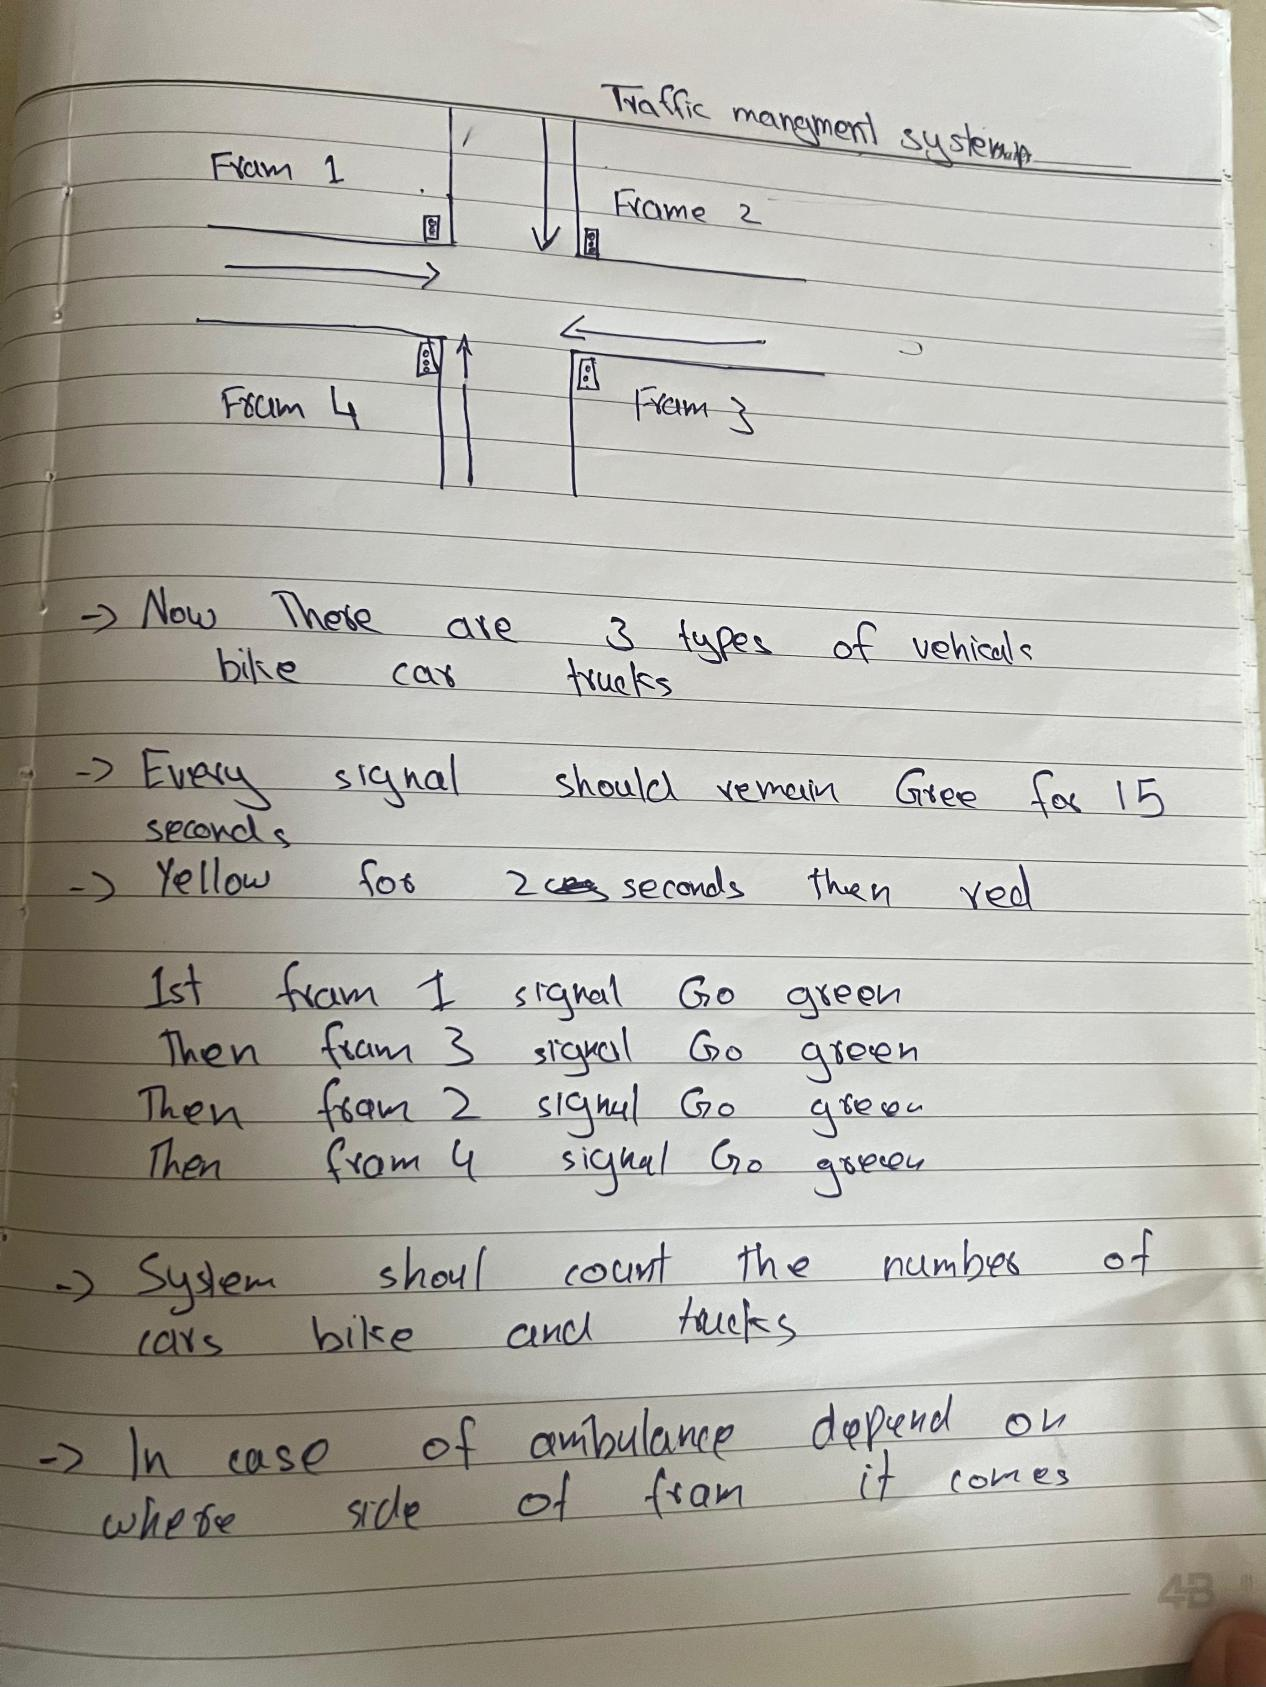 Traffic mangment system
Fram 1
Frame 2
Fram 4
Fram 3
-> Now There are 3 types of vehicals
bike car trucks
-> Every signal should remain Gree for 15
seconds
-> Yellow for 2 seconds then red
1st fram 1 signal Go green
Then fram 3 signal Go green
Then fram 2 signal Go green
Then fram 4 signal Go green
-> System shoul count the number of
cars bike and trucks
-> In case of ambulance depend on
where side of fram it comes
4B